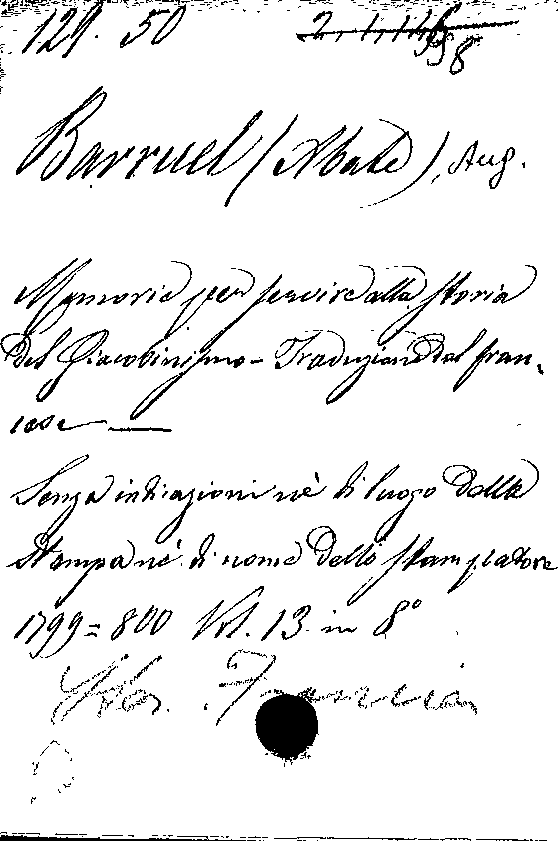 129. 50
Barruel (Abate), Aug.
Memorie per servire alla storia
del Giacobinismo - Traduzione dal fran-
cese
Senza indicazioni nè di luogo della
stampa nè di nome dello stampatore
1799=800 Vol. 13 in 8º
Francia